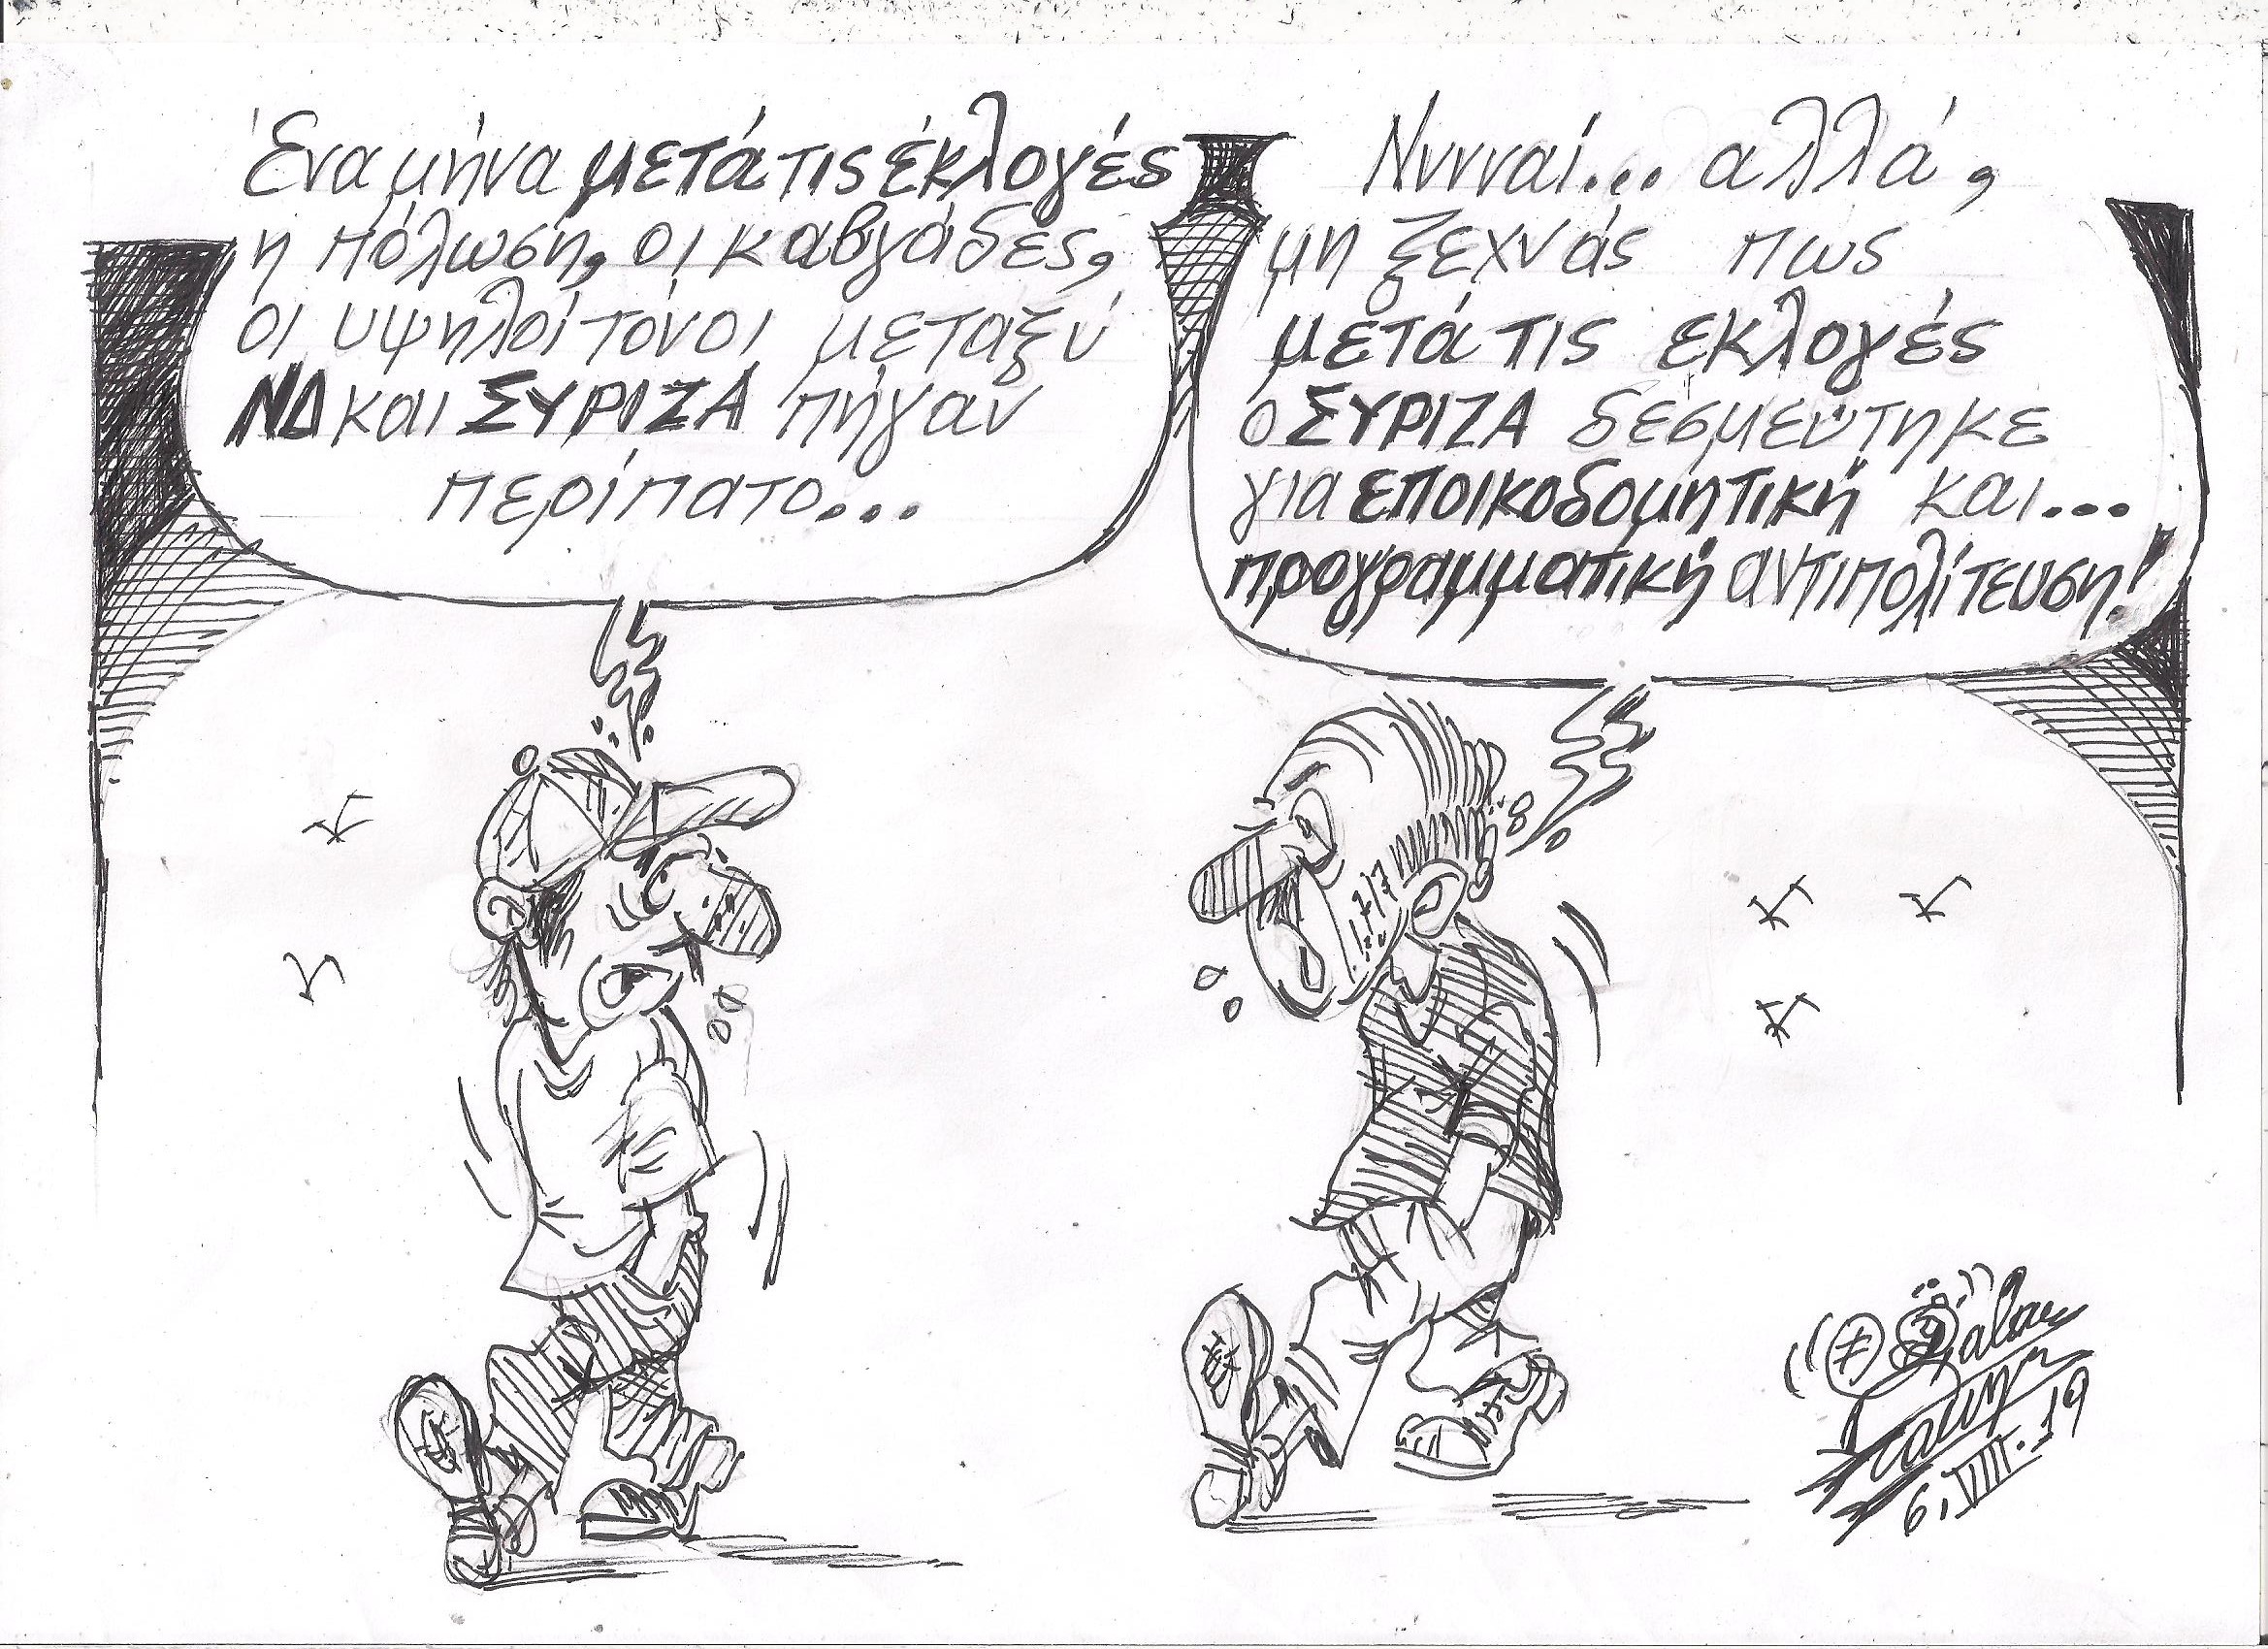 Ένα μήνα μετά τις έκλογές
η πόλωση, οι καβγάδες,
οι υψηλοί τόνοι μεταξύ
ΝΔ και ΣΥΡΙΖΑ πήγαν
περίπατο...
Νννναί... αλλά,
μη ξεχνάς πως
μετά τις εκλογές
ο ΣΥΡΙΖΑ δεσμεύτηκε
για εποικοδομητική και...
προγραμματική αντιπολίτευση!
6.VIII.19